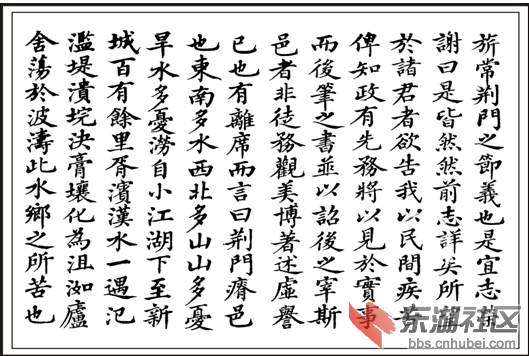 旂常荆門之節義也是宜志
謝曰是皆然然前志詳矣所
於諸君者欲告我以民間疾苦
俾知政有先務將以見於實事
而後筆之書並以詔後之宰斯
邑者非徒務觀美博著述虛譽
已也有離席而言曰荆門瘠邑
也東南多水西北多山山多憂
旱水多憂澇自小江湖下至新
城百有餘里胥濱漢水一遇氾
濫堤潰垸決膏壤化為沮洳廬
舍蕩於波濤此水鄉之所苦也
东湖社区
bbs.cnhubei.com